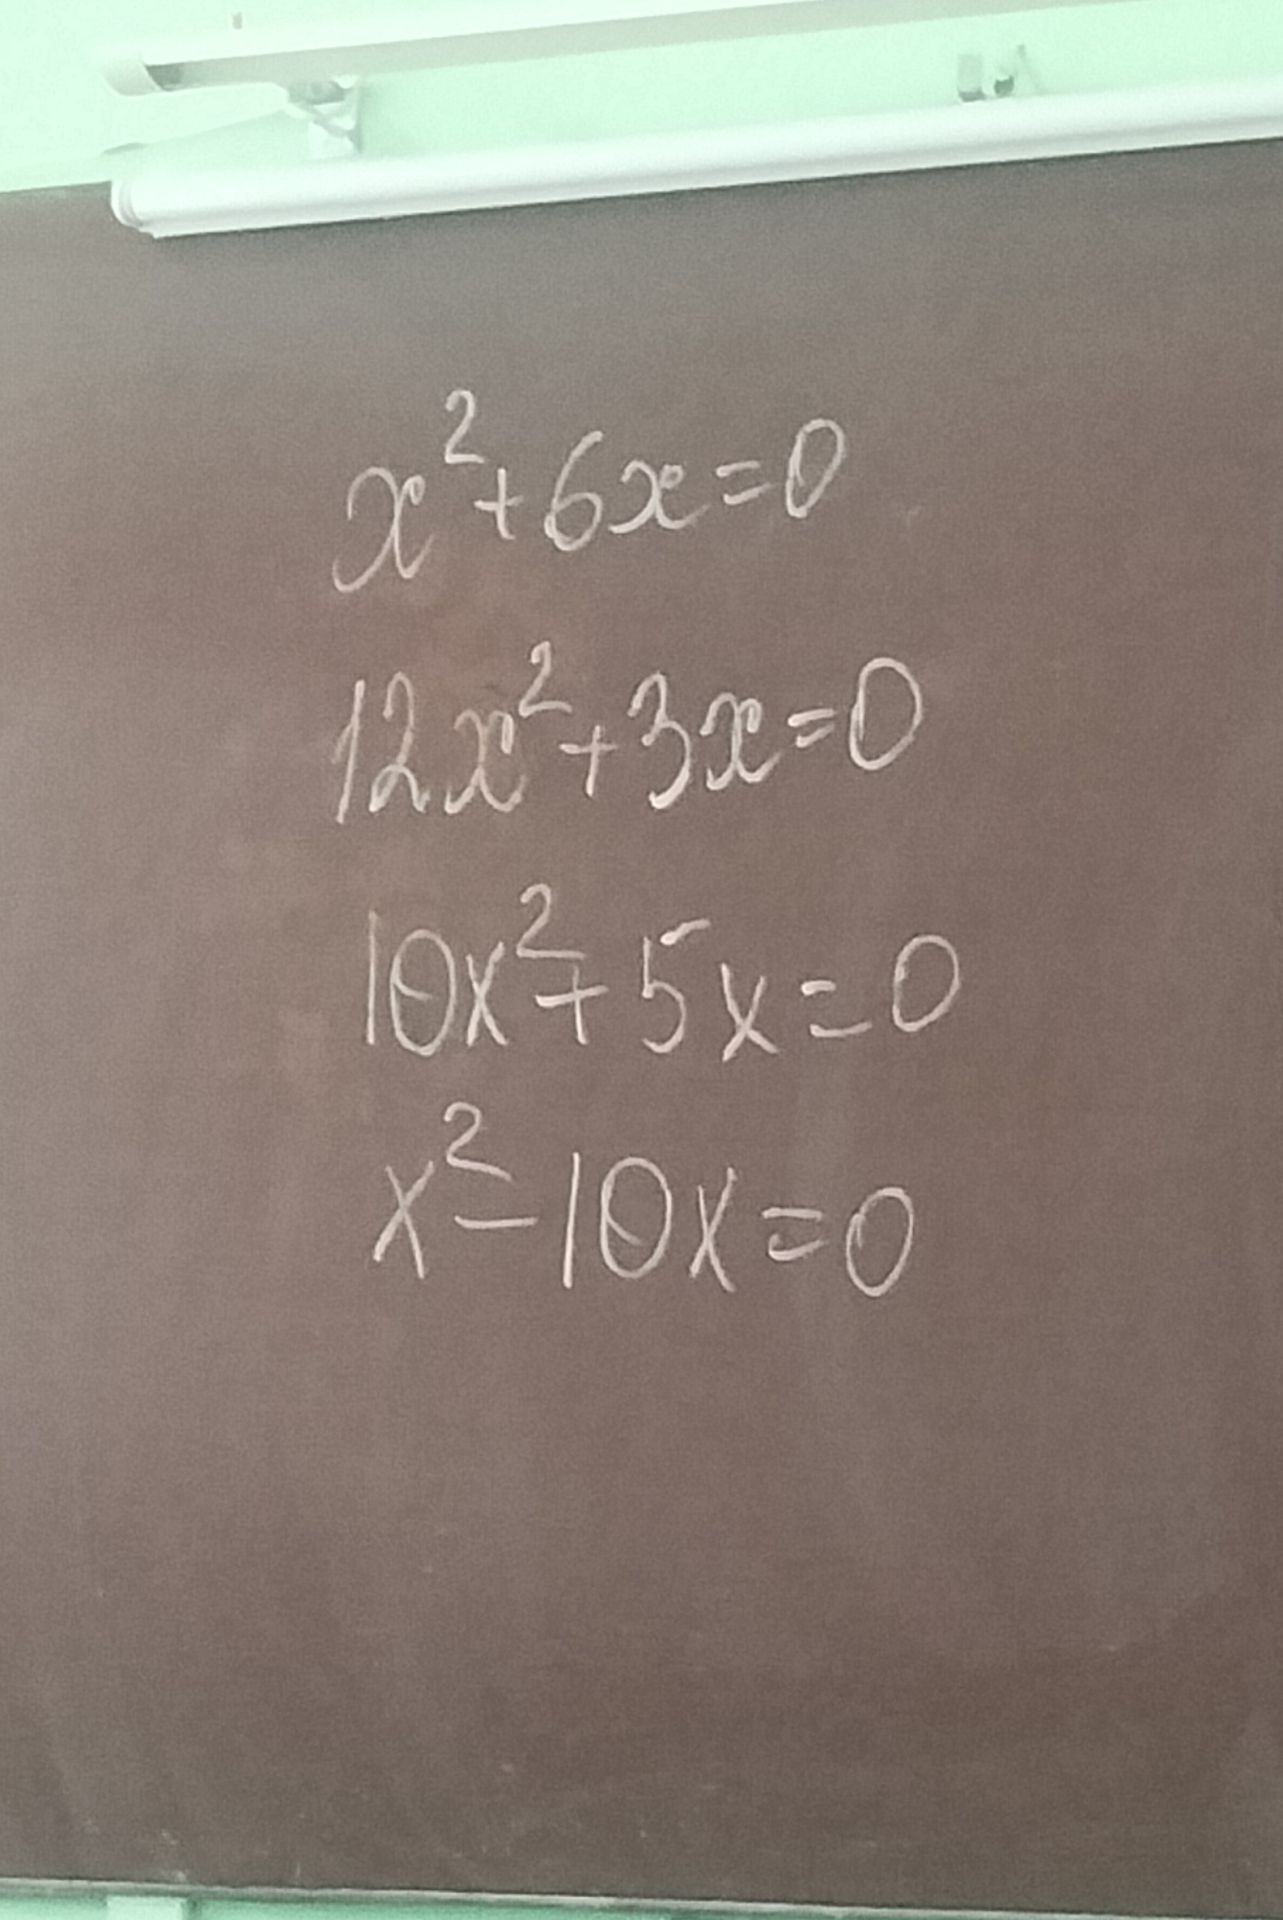 x²+6x=0
12x²+3x=0
10x²+5x=0
x²-10x=0